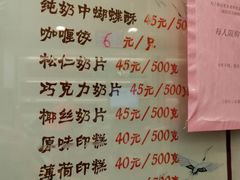 纯奶中蝴蝶酥 45元/500
咖喱饺 6元/只
松仁奶片 45元/500克
巧克力奶片 45元/500克
椰丝奶片 45元/500克
原味印糕 40元/500克
薄荷印糕 40元/500克
每人限购